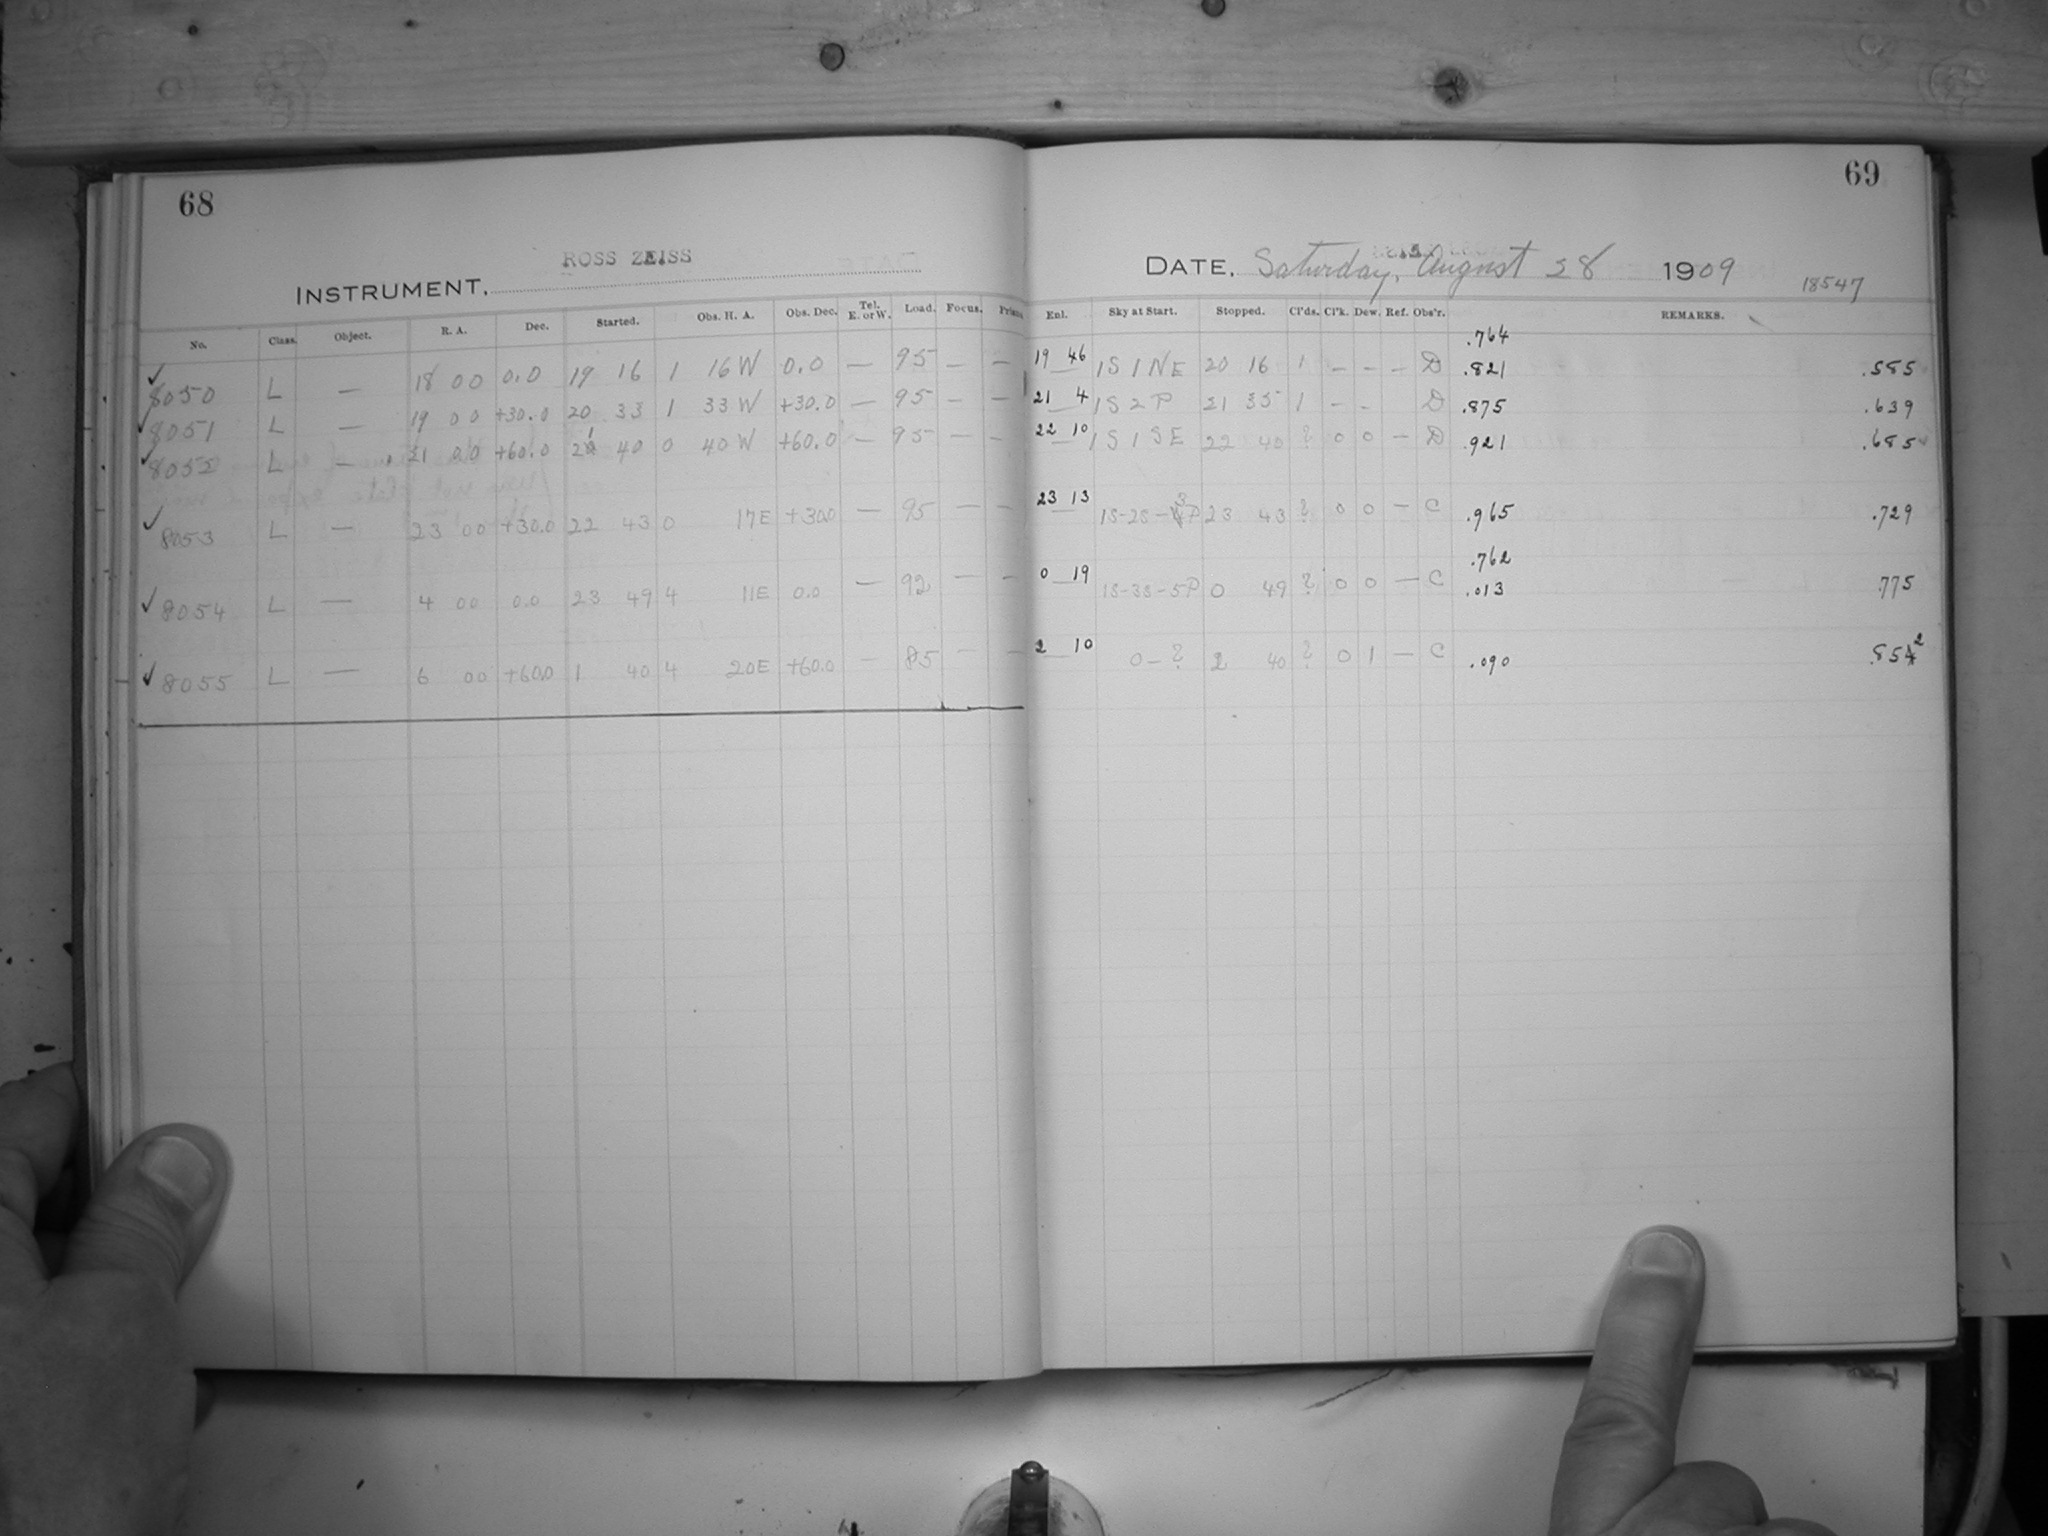 68
ROSS ZEISS
INSTRUMENT.
No. Class. Object. R. A. Dec. Started. Obs. H. A. Obs. Dec. Tel. E. or W. Load. Focus. Prism.
✓ 8050 L — 18 00 0.0 19 16 1 16 W 0.0 — 95 — —
✓ 8051 L — 19 00 +30.0 20 33 1 33 W +30.0 — 95 — —
✓ 8052 L — 21 00 +60.0 21 40 0 40 W +60.0 — 95 — —
✓ 8053 L — 23 00 +30.0 22 43 0 17 E +30.0 — 95 — —
✓ 8054 L — 4 00 0.0 23 49 4 11 E 0.0 — 92 — —
✓ 8055 L — 6 00 +60.0 1 40 4 20 E +60.0 — 85 — —
69
DATE. Saturday, August 28 1909
18547
Enl. Sky at Start. Stopped. Cl'ds. Cl'k. Dew. Ref. Obs'r. REMARKS.
.764
19 46 1S 1NE 20 16 1 — — — D .821 .585
21 4 1S 2P 21 35 1 — — D .875 .639
22 10 1S 1SE 22 40 ? 0 0 — D .921 .685
23 13 1S-2S-3P 23 43 ? 0 0 — C .965 .729
.762
0 19 1S-3S-5P 0 49 ? 0 0 — C .013 .775
2 10 0-? 2 40 ? 0 1 — C .090 .852